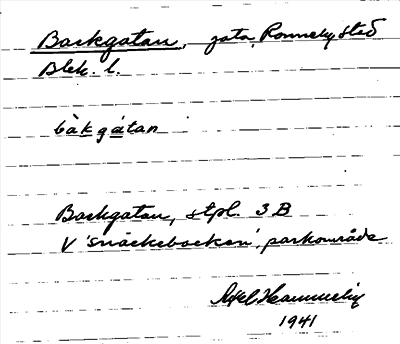 Backgatan, gata, Ronneby stad
Blek. l.
bàkgátan
Backgatan, stpl. 3 B
V 'snäckebacken', parkområde
Axel
1941